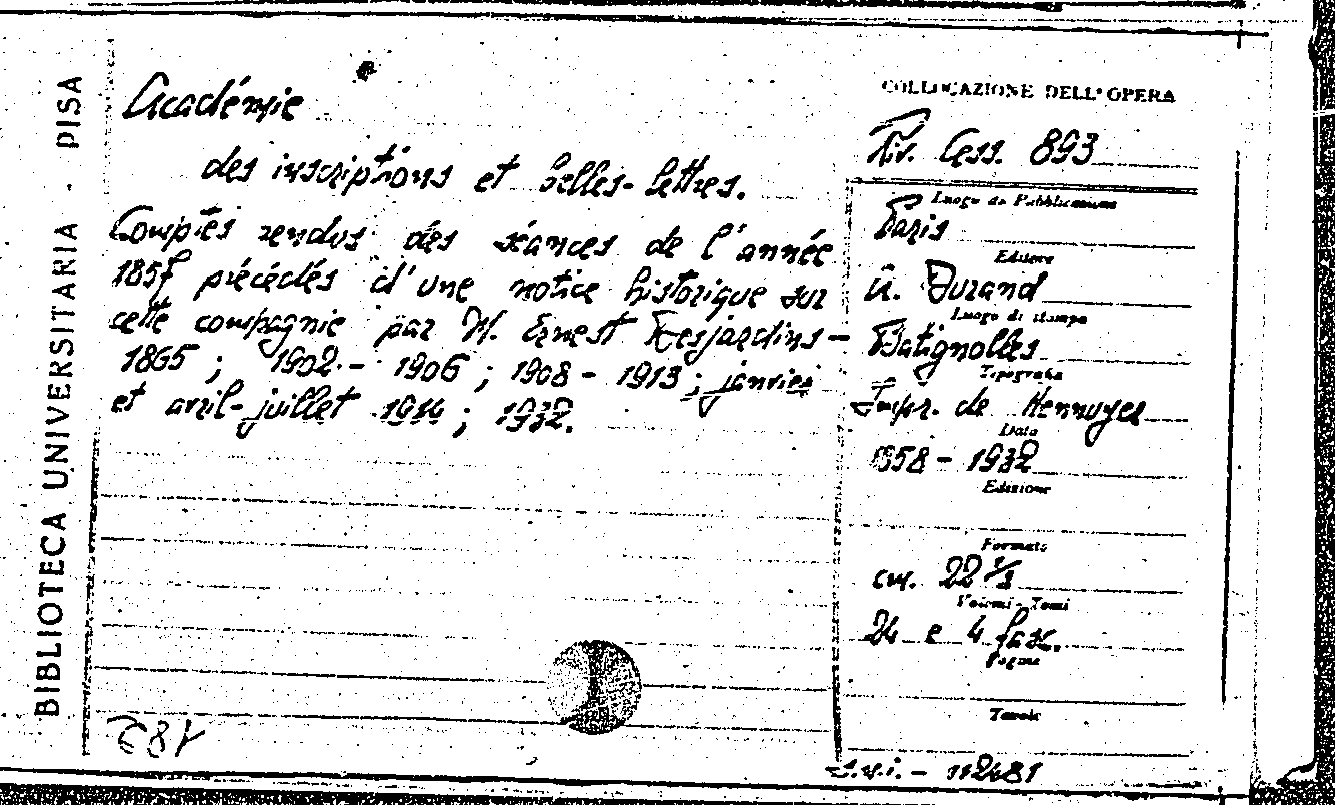 BIBLIOTECA UNIVERSITARIA - PISA
Académie
des inscriptions et belles-lettres.
Comptes rendus des séances de l'année
1857 précédés d'une notice historique sur
cette compagnie par M. Ernest Desjardins -
1865 ; 1902 - 1906 ; 1908 - 1913 ; janvier
et avril-juillet 1914 ; 1932.
COLLOCAZIONE DELL'OPERA
Riv. Cess. 893
Luogo di Pubblicazione
Paris
Editore
A. Durand
Luogo di stampa
Batignolles
Tipografia
Impr. de Hennuyer
Data
1858 - 1932
Edizione
Formato
cm. 22 ½
Volumi - Tomi
24 e 4 fasc.
Pagine
Tavole
- 112481